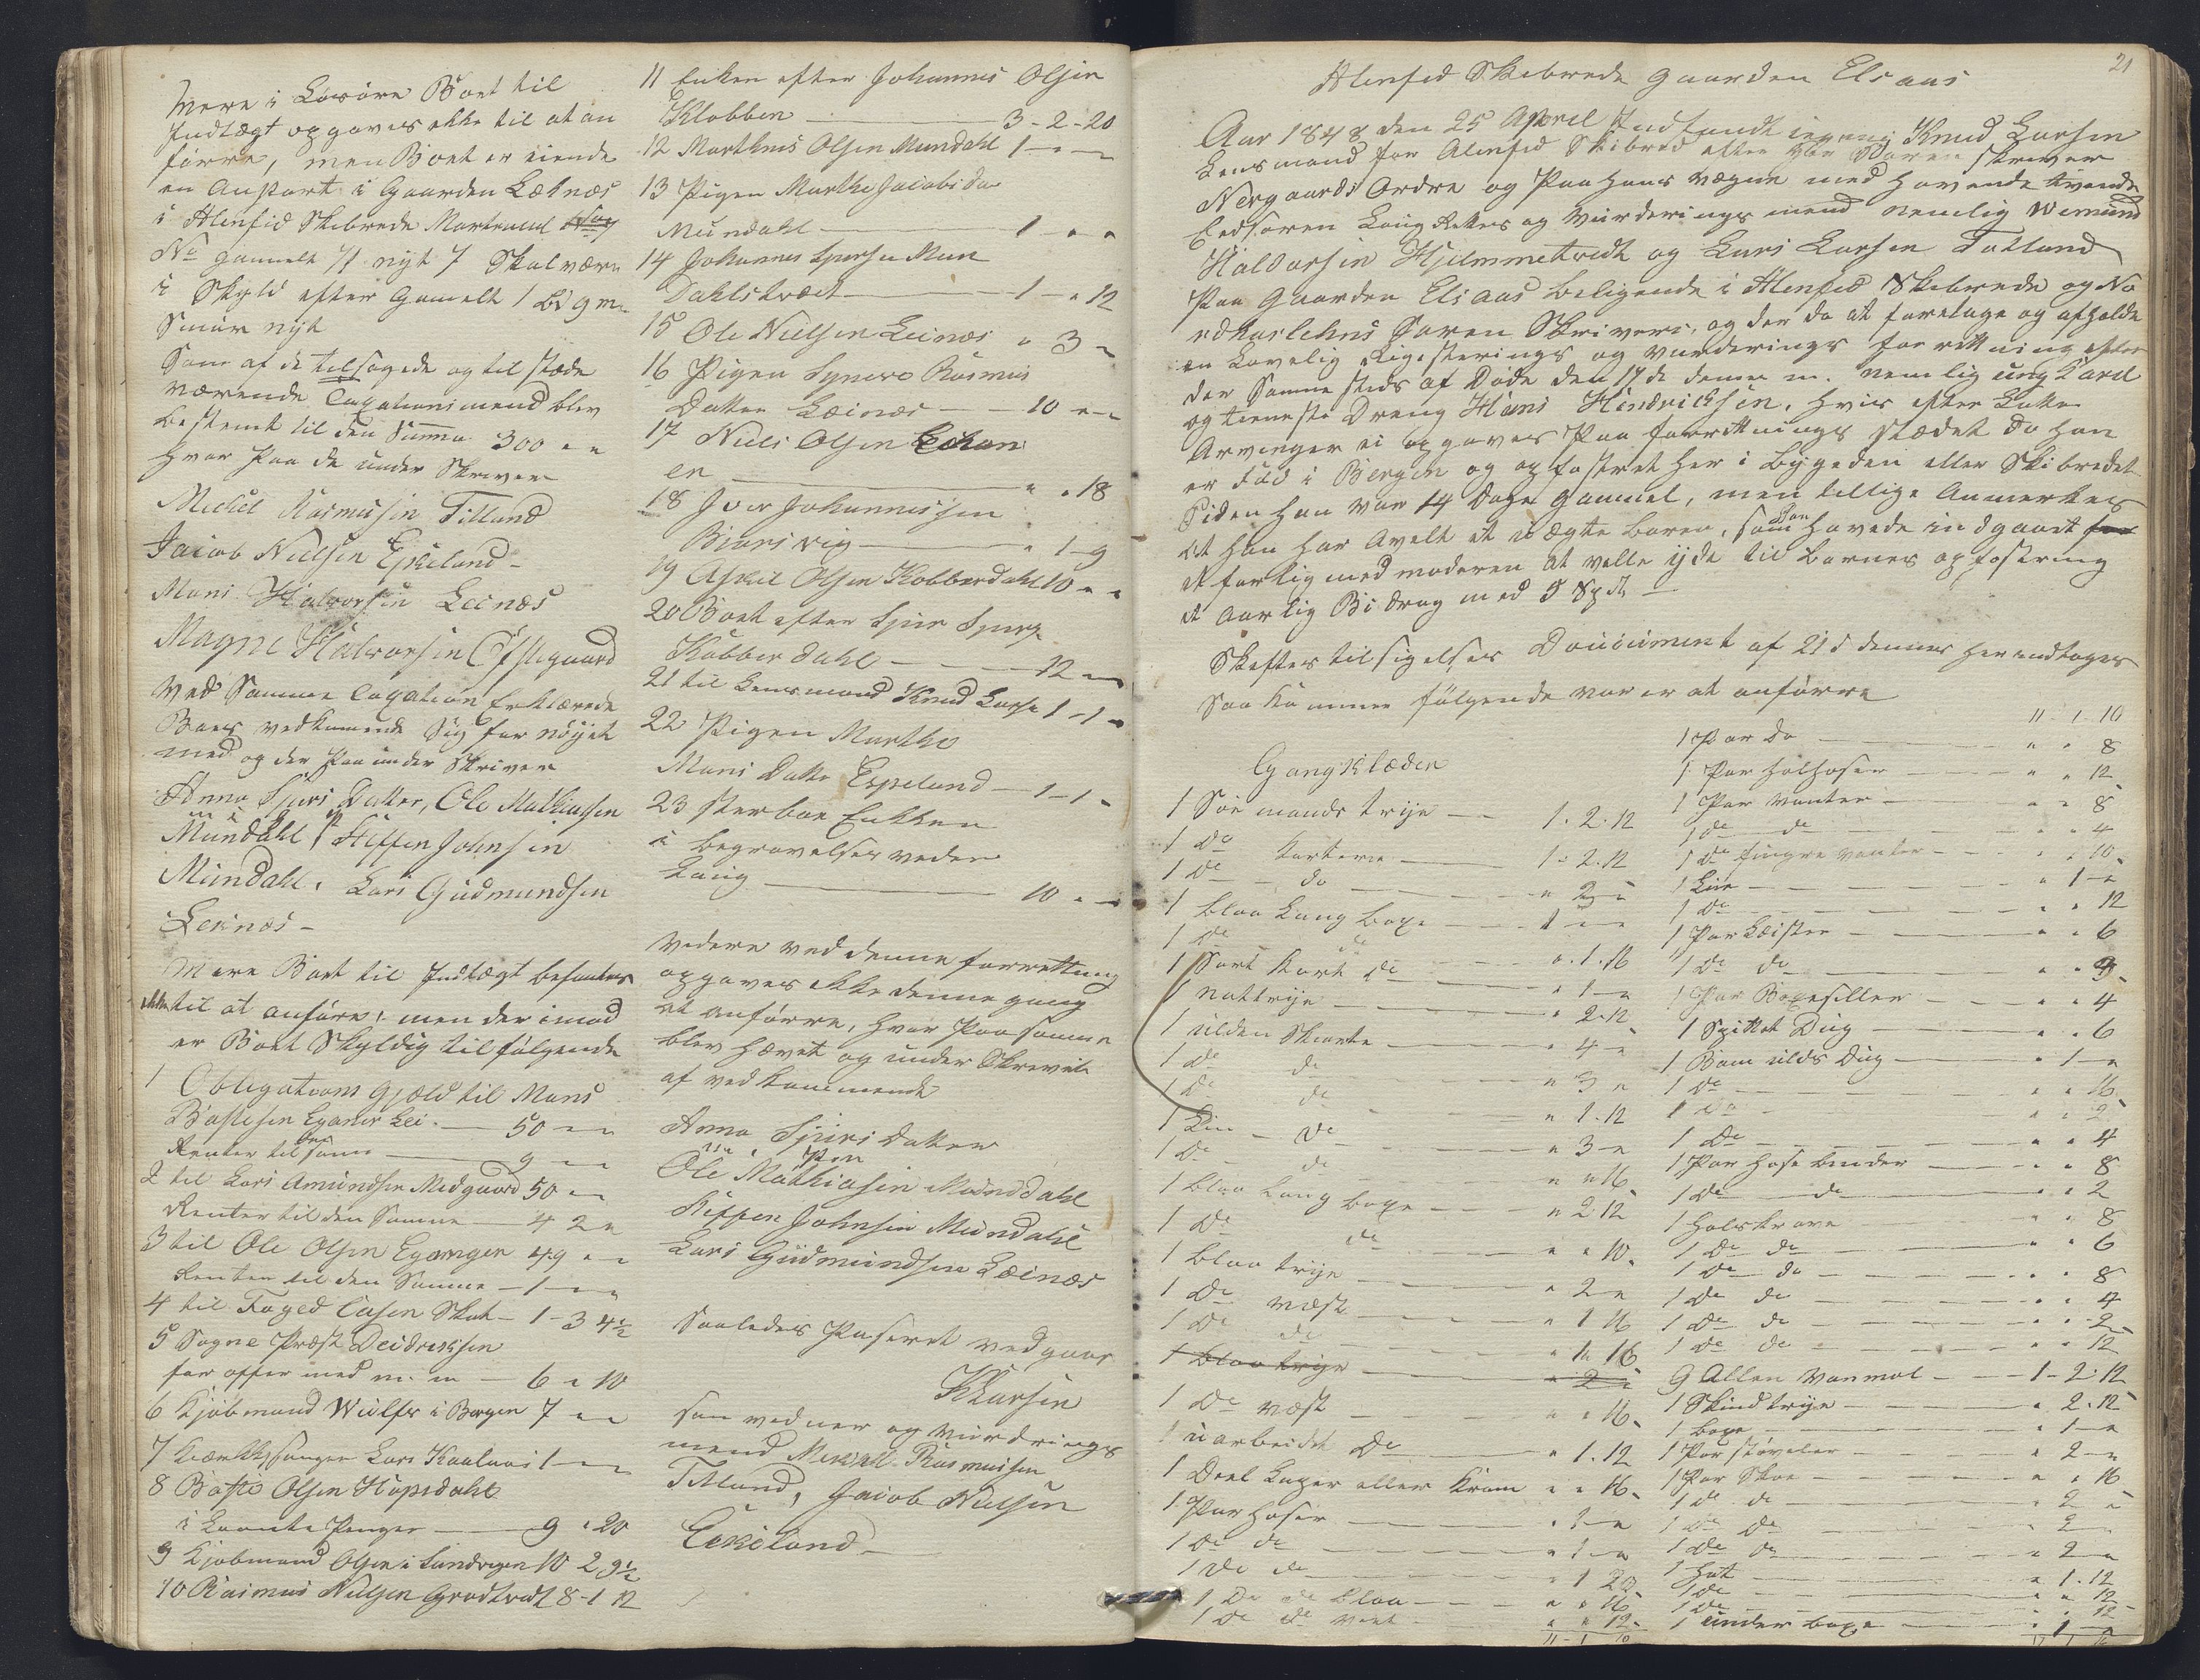 Mere i Løsøre Boet til
Indtægt opgaves ikke til at an
førre, men Boet er eiende
en Anpart i Gaarden Leknæs
i Alenfid Skibrede Martrecul
No gammelt 71 nyt 7 Skal være
i Skyld efter Gamelt 1 Bd 9 m
Smør nyt
Som af de tilsagede og til stæde
værende Taxationsmend blev
bestemt til den Summa 300 " "
hvor paa de under Skriver
Mickel Rasmusin Titland
Jacob Nielsen Eskeland -
Mons Halvorsin Leinæs
Magne Halvorsin Østegaard
Ved Samme Taxation Erklærede
Boets vedkomende Sig fornøyet
med og der paa under Skriver
Anna Sjurs Datter, Ole Mathiassen
Mundahl, Steffen Johnsin
Mundahl, Lars Gudmundsen
Leinæs -
Mere Boet til Indtægt befantes
ikke til at anføre, men der imod
er Boet Skyldig til følgende
1 Obligations Gjæld til Mons
50 " "
Renter til den Same 9 " "
2 til Lars Amundsen Midgaard 50 " "
Renter til den Samme 4 2 "
3 til Ole Olsen Eganger 49 " "
Renter til den Samme - 1 - "
4 til Foged Skat - 1 - 3 4½
5 Sogne Præst Deidrichsen
for offer med m. m - 6 " 10
6 Kjøbmand Wulfs i Bergen 7 " "
7 Lars 1 - "
8 Baste Olsen Hopsdahl
i Laante Penger 9 " 20
9 Kjøbmand Olsen i 10 2 9½
10 Rasmus Nielsen 8 - 1 12
11 Enken efter Johannes Olsen
Klobben 3 - 2 - 20
12 Marthus Olsen Mundahl 1 - "
13 Pigen Marthe Jacobs Da
Mundahl 1 " "
14 Johannes Sjursen Mun
Dahlstvedt 1 - " 12
15 Ole Nielsen Leinæs " 3 "
16 Pigen Synneve Rasmus
Datter Leinæs - - 10 " "
17 Niels Olsen
en " " 18
18 Iver Johannissen
Biørsvig " 1 - 9
19 Askil Olsen Kobberdahl 10 " "
20 Boet efter Sjur Sjurs
Kobberdahl 12 "
21 til Lensmand Knud Larsen 1 - 1 "
22 Pigen Marthe
Mons Datter Espeland - 1 - 1 "
23 Sterboe Enkken
i Begravelses veder
Laug 10 " "
Videre ved denne forrettning
opgaves ikke denne gang
at anførre, hvor paa samme
blev hævet og under Skrevet
af vedkommende
Anna Sjurs Datter
m Pen
Ole Mathiasin Mundahl
Steffen Johnsin Mundahl
Lars Gudmundsen Leinæs
Saaledes Paseret vedgaar
KLarsen
som vedner og vurderings
mend Mickel Rasmussen
Titland, Jacob Nielsen
Eskeland
21
Alenfid Skibrede Gaarden Elsaas
Aar 1848 den 25 April Indfandt Knud Larsen
Lensmand for Alenfid Skibrede efter Hr Soren skriver
Nergaards Ordre og Paa Hans vægne med havende tvende
Eedsoren Laug Rettes og vurderings mend nemlig Wemund
Haldorsin Hjelmmetvedt og Lars Larsen Totland
paa Gaarden Elsaas beligende i Alenfid Skibrede og No
rdhorlehns Soren Skriveri, og der da at foretage og afholde
en Lovelig Registerings og vurderings forrettning efter
der Samme steds af Døde den 17de denne m. nemlig ung Karl
og tieneste Dreng Hans Hendrichsen, hvis efter Latte
Arvinger ei opgaves Paa forrettnings stædet da han
er fød i Bergen og opfostret her i bygeden eller Skibredet
siden han var 14 Dage gammel, men tillige Anmerkes
at han har Avelt et uægte Baren, som han havede indgaaet
et forlig med moderen at velle yde til barnes opfostring
et aarlig Bidrag med 5 Spd
Skiftes tilsigelses Doucument af 21d dennes her indtages
Saa kommer følgende varer at anførre
Gangklæder
1 Søe mands trøje - 1 . 2 . 12
1 Do kortere 1 - 2 . 12
1 Do do " 2 "
1 blaa Lang boxe 1 " "
1 Do do " . 1 . 16
1 Sort Kort do " 1 "
1 nattrøje " 2 . 12
1 ulden Skiorte " 4 "
1 Do do " 3 "
1 Do do " 1 . 12
1 Lin - Do " 3 "
1 Do do " " 16
1 blaa Lang boxe - " 2 12
1 Do do " " 10
1 blaa trøje " 2 "
1 Do væst " 1 16
1 Do do " 1 16
1 blaa trøje " 2 "
1 Do væst " " 16
1 uarbeidt Do " 1 . 12
1 Deel Lapper eller Kram " " 16
1 Par hoser " 1 "
1 Do do " 1 "
1 Do do " 1 20
1 Do do blaa " " 16
1 Do do vont " " 12
11 - 1 10
11 - 1 - 10
1 Par Do " " 8
1 Par halhoser " " 12
1 Par Vanter " " 8
1 do do " " 4
1 Do fingre vanter " " 10
1 Lue " 1 "
1 Do " " 12
1 Par Læister " " 6
1 Do do " " 3
1 Par Boxeseller " " 4
1 Spittet Dug " " 6
1 Bom ulds Dug " 1 "
1 Do " " 16
1 Do " " 2
1 Do " " 4
1 Par hose bender " " 8
1 Do do " " 2
1 halskrave " " 8
1 Do do " " 6
1 Do do " " 8
1 Do do " " 4
1 Do do " " 2
1 Do do " " 12
9 Allen vanmol - 1 - 2 . 12
1 Skindtrøje " 2 . 12
1 boxe " 1 "
1 Par støveler " 2 "
1 Par Skoe " " 16
1 do do " 2 "
1 Do Do " 2 "
1 Do Do " 2 "
1 hat " 1 . 12
1 Do " " 12
1 Do " " 12
1 under boxe " 1 "